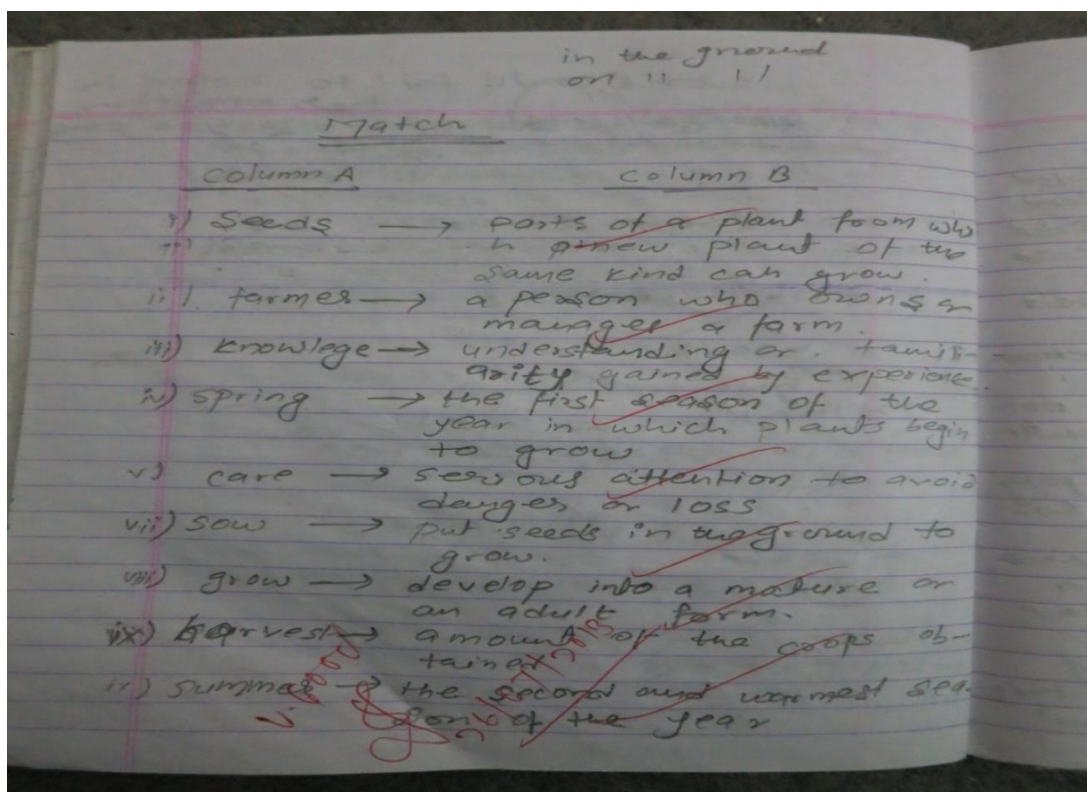 in the ground
on " "
Match
Column A Column B
i) Seeds → parts of a plant from whi
h a new plant of the
same kind can grow.
ii) farmer → a person who owns or
manages a farm.
iii) Knowlege → understanding or famili-
arity gained by experience
iv) spring → the first season of the
year in which plants begin
to grow
v) care → serious attention to avoid
danger or loss
vii) sow → put seeds in the ground to
grow.
viii) grow → develop into a mature or
an adult form.
ix) harvest → amount of the crops ob-
tained
summer → the second and warmest sea-
son of the year
V. Good